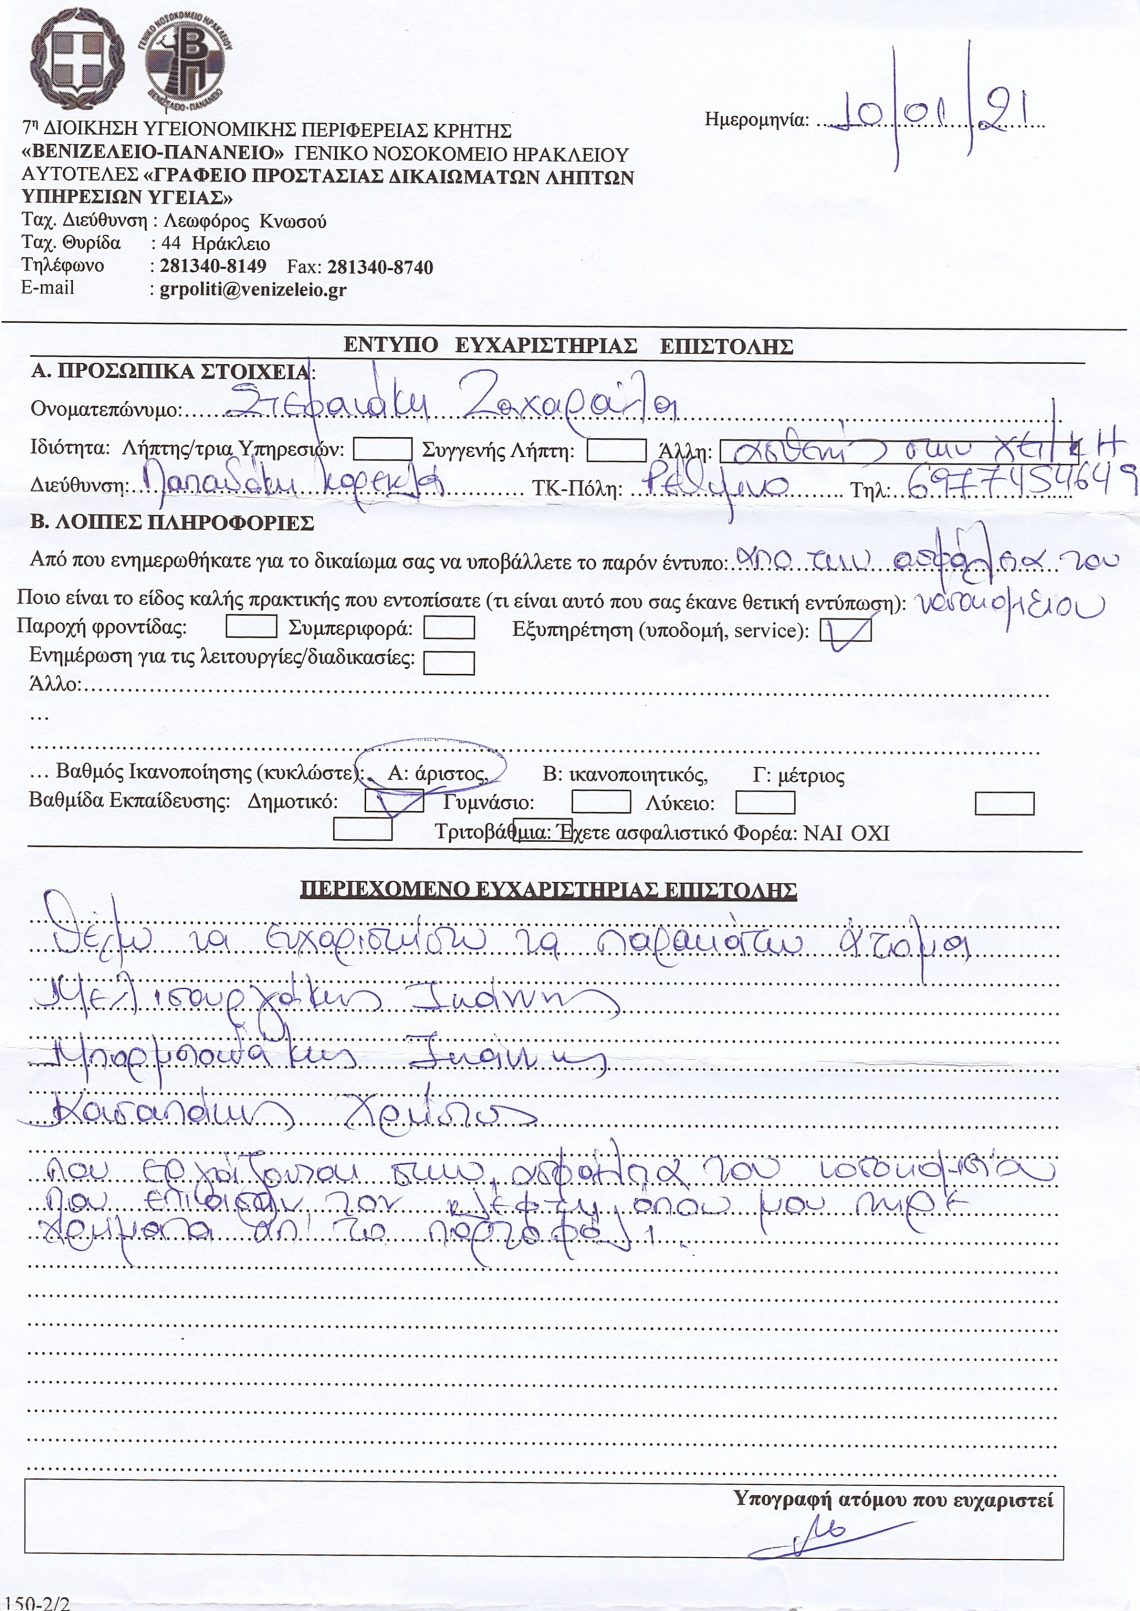 ΓΕΝΙΚΟ ΝΟΣΟΚΟΜΕΙΟ ΗΡΑΚΛΕΙΟΥ
ΒΠ
ΒΕΝΙΖΕΛΕΙΟ-ΠΑΝΑΝΕΙΟ
Ημερομηνία: 10/01/21
7η ΔΙΟΙΚΗΣΗ ΥΓΕΙΟΝΟΜΙΚΗΣ ΠΕΡΙΦΕΡΕΙΑΣ ΚΡΗΤΗΣ
«ΒΕΝΙΖΕΛΕΙΟ-ΠΑΝΑΝΕΙΟ» ΓΕΝΙΚΟ ΝΟΣΟΚΟΜΕΙΟ ΗΡΑΚΛΕΙΟΥ
ΑΥΤΟΤΕΛΕΣ «ΓΡΑΦΕΙΟ ΠΡΟΣΤΑΣΙΑΣ ΔΙΚΑΙΩΜΑΤΩΝ ΛΗΠΤΩΝ
ΥΠΗΡΕΣΙΩΝ ΥΓΕΙΑΣ»
Ταχ. Διεύθυνση : Λεωφόρος Κνωσού
Ταχ. Θυρίδα : 44 Ηράκλειο
Τηλέφωνο : 281340-8149 Fax: 281340-8740
E-mail : grpoliti@venizeleio.gr
ΕΝΤΥΠΟ ΕΥΧΑΡΙΣΤΗΡΙΑΣ ΕΠΙΣΤΟΛΗΣ
Α. ΠΡΟΣΩΠΙΚΑ ΣΤΟΙΧΕΙΑ:
Ονοματεπώνυμο: Στεφανάκη
Ιδιότητα: Λήπτης/τρια Υπηρεσιών: Συγγενής Λήπτη: Άλλη: ασθενής στην ΧΕΙ/ΚΗ
Διεύθυνση: Παπαδάκη ΤΚ-Πόλη: Ρέθυμνο Τηλ: 6977454649
Β. ΛΟΙΠΕΣ ΠΛΗΡΟΦΟΡΙΕΣ
Από που ενημερωθήκατε για το δικαίωμα σας να υποβάλλετε το παρόν έντυπο: απο την ασφάλεια του
Ποιο είναι το είδος καλής πρακτικής που εντοπίσατε (τι είναι αυτό που σας έκανε θετική εντύπωση): νοσοκομείου
Παροχή φροντίδας: Συμπεριφορά: Εξυπηρέτηση (υποδομή, service):
Ενημέρωση για τις λειτουργίες/διαδικασίες:
Άλλο:
…
… Βαθμός Ικανοποίησης (κυκλώστε): Α: άριστος, Β: ικανοποιητικός, Γ: μέτριος
Βαθμίδα Εκπαίδευσης: Δημοτικό: Γυμνάσιο: Λύκειο:
Τριτοβάθμια: Έχετε ασφαλιστικό Φορέα: ΝΑΙ ΟΧΙ
ΠΕΡΙΕΧΟΜΕΝΟ ΕΥΧΑΡΙΣΤΗΡΙΑΣ ΕΠΙΣΤΟΛΗΣ
Θέλω να ευχαριστήσω τα παρακάτω άτομα
Μελισουργάκης Ιωάννης
Μπορμπουδάκης Ιωάννης
Κασαπάκης Χρήστος
που εργάζονται στην ασφάλεια του νοσοκομείου
που επιασαν τον κλέφτη όπου μου πηρε
χρηματα απ' το πορτοφόλι.
Υπογραφή ατόμου που ευχαριστεί
150-2/2